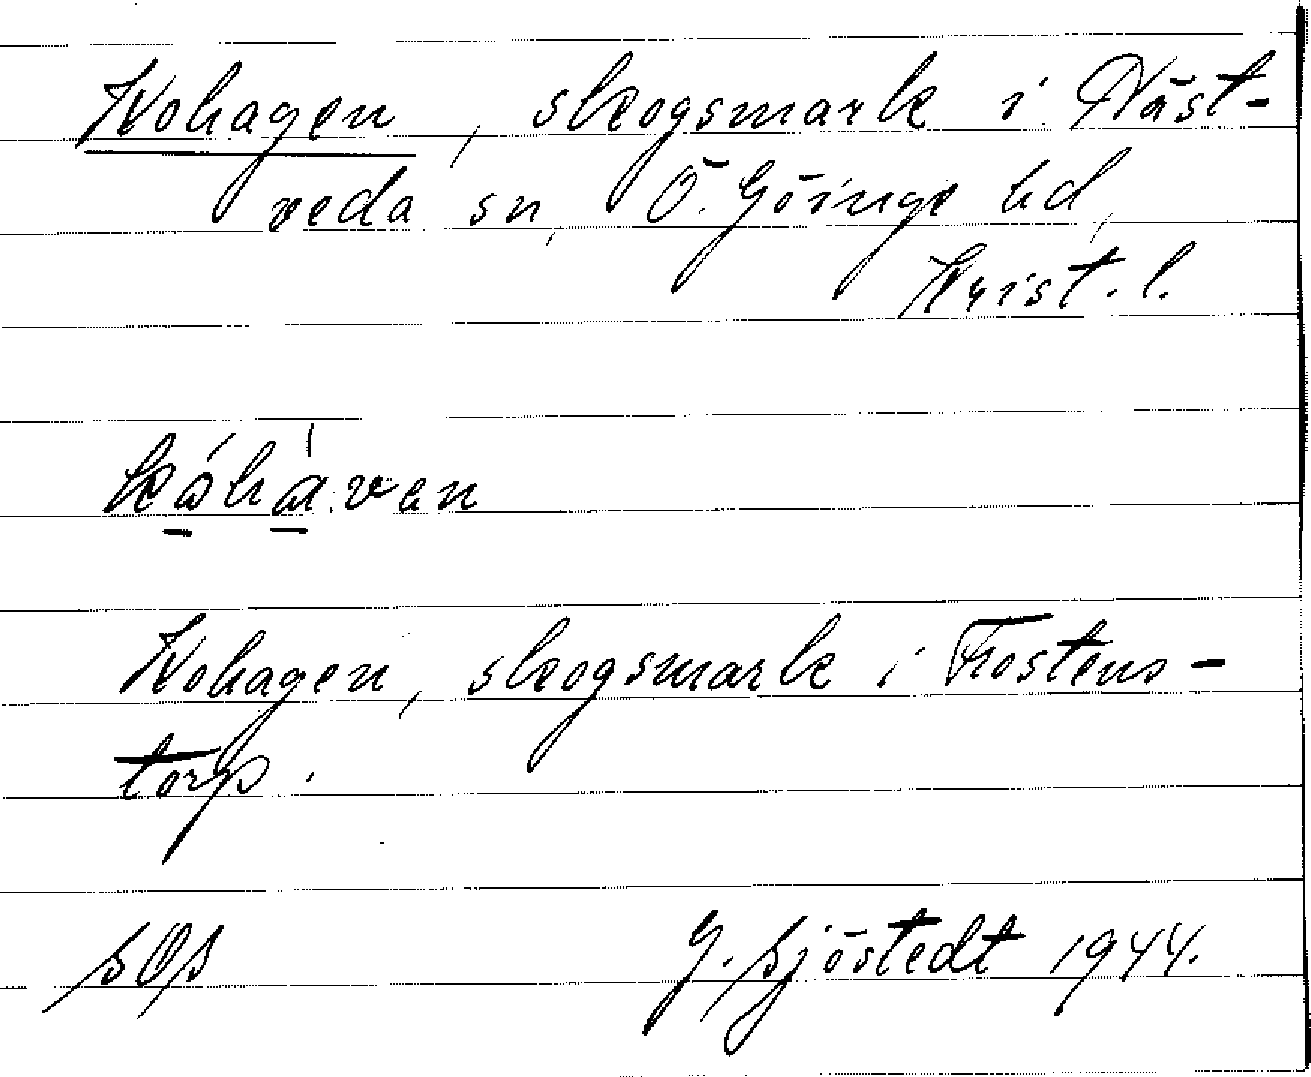 Kohagen, skogsmark i Näst-
veda sn, Ö. Göinge hd,
Krist. l.
kóhá.ven
Kohagen, skogsmark i Frostens-
torp.
SOS
G. Sjöstedt 1944.